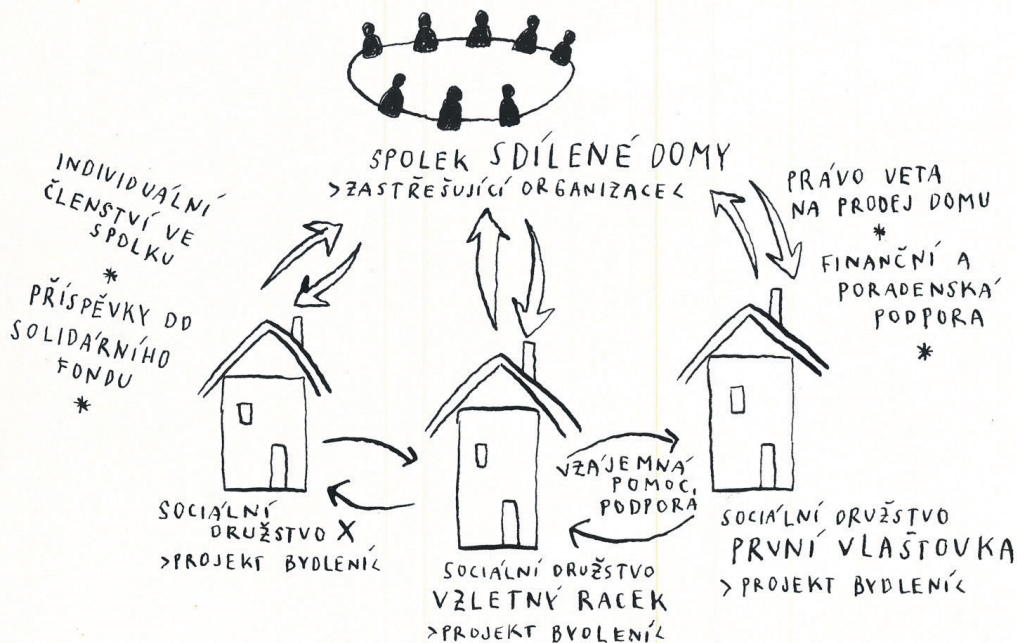 SPOLEK SDÍLENÉ DOMY
>ZASTŘEŠUJÍCÍ ORGANIZACE<
INDIVIDUÁLNÍ
ČLENSTVÍ VE
SPOLKU
*
PŘÍSPĚVKY DO
SOLIDÁRNÍHO
FONDU
*
PRÁVO VETA
NA PRODEJ DOMU
*
FINANČNÍ A
PORADENSKÁ
PODPORA
*
SOCIÁLNÍ
DRUŽSTVO X
>PROJEKT BYDLENÍ<
VZÁJEMNÁ
POMOC,
PODPORA
SOCIÁLNÍ DRUŽSTVO
VZLETNÝ RACEK
>PROJEKT BYDLENÍ<
SOCIÁLNÍ DRUŽSTVO
PRVNÍ VLAŠTOVKA
>PROJEKT BYDLENÍ<